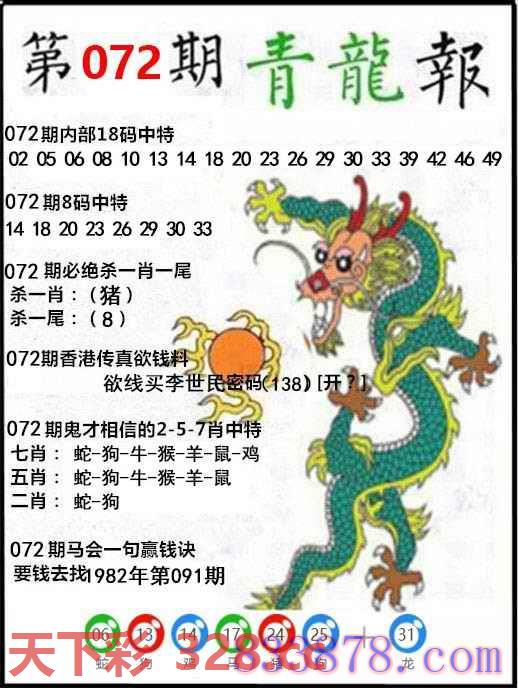 第072期 青龍報
072期内部18码中特
02 05 06 08 10 13 14 18 20 23 26 29 30 33 39 42 46 49
072期8码中特
14 18 20 23 26 29 30 33
072期必绝杀一肖一尾
杀一肖:(猪)
杀一尾:(8)
072期香港传真欲钱料
欲线买李世民密码(138)[开?]
072期鬼才相信的2-5-7肖中特
七肖: 蛇-狗-牛-猴-羊-鼠-鸡
五肖: 蛇-狗-牛-猴-羊-鼠
二肖: 蛇-狗
072期马会一句赢钱诀
要钱去找1982年第091期
06 13 14 17 24 25 + 31
蛇 狗 鸡 马 猪 狗 龙
天下彩